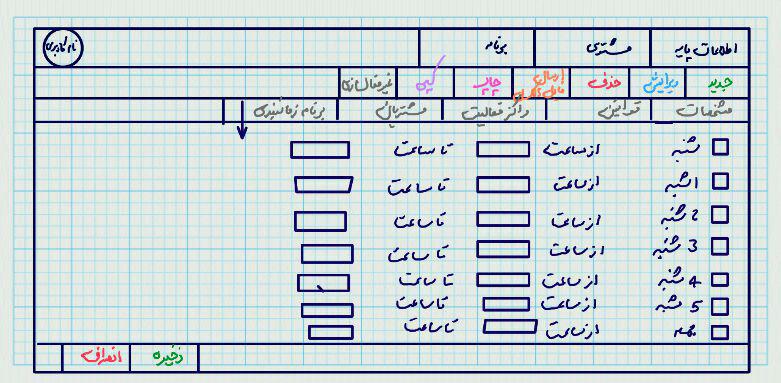 اطلاعات پایه مشتری برنامه نام کاربری
جدید ویرایش حذف ارسال فایل چاپ کپی غیرفعالسازی
مشخصات قوانین مراکز فعالیت مشتریان برنامه زمانبندی
شنبه از ساعت تا ساعت
1شنبه از ساعت تا ساعت
2شنبه از ساعت تا ساعت
3شنبه از ساعت تا ساعت
4شنبه از ساعت تا ساعت
5شنبه از ساعت تا ساعت
جمعه از ساعت تا ساعت
ذخیره انصراف